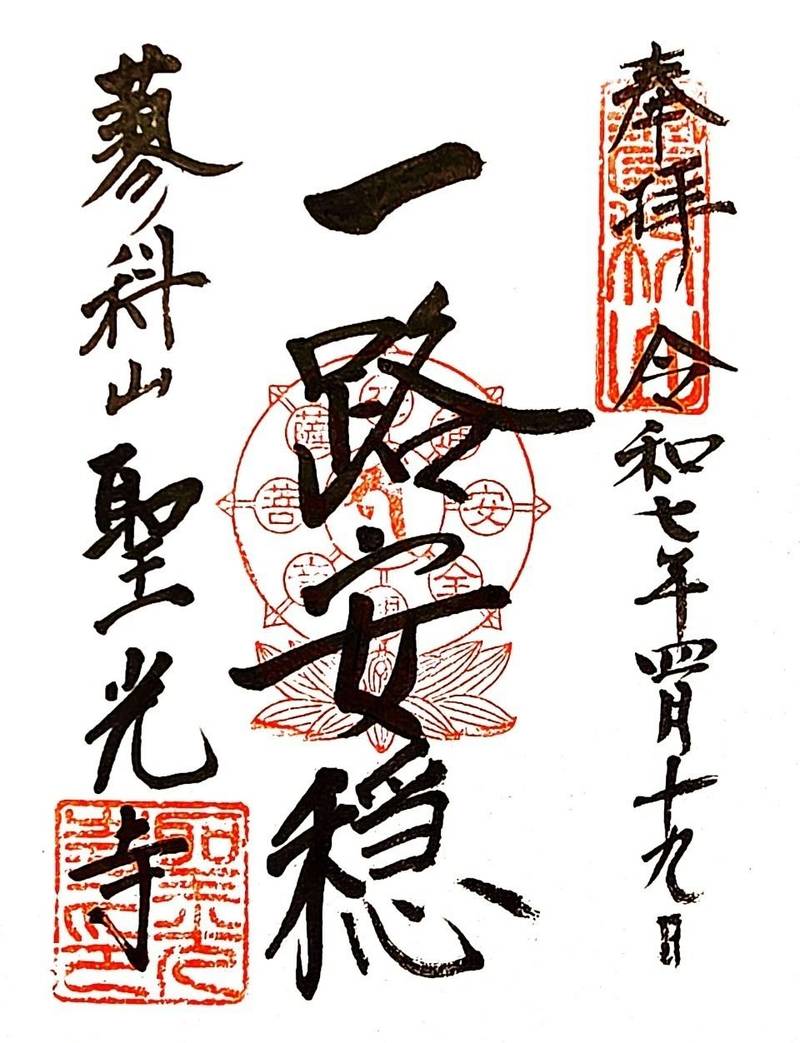 奉拝 令和七年四月十九日
一路安穏
蓼科山 聖光寺
交通安全
菩薩